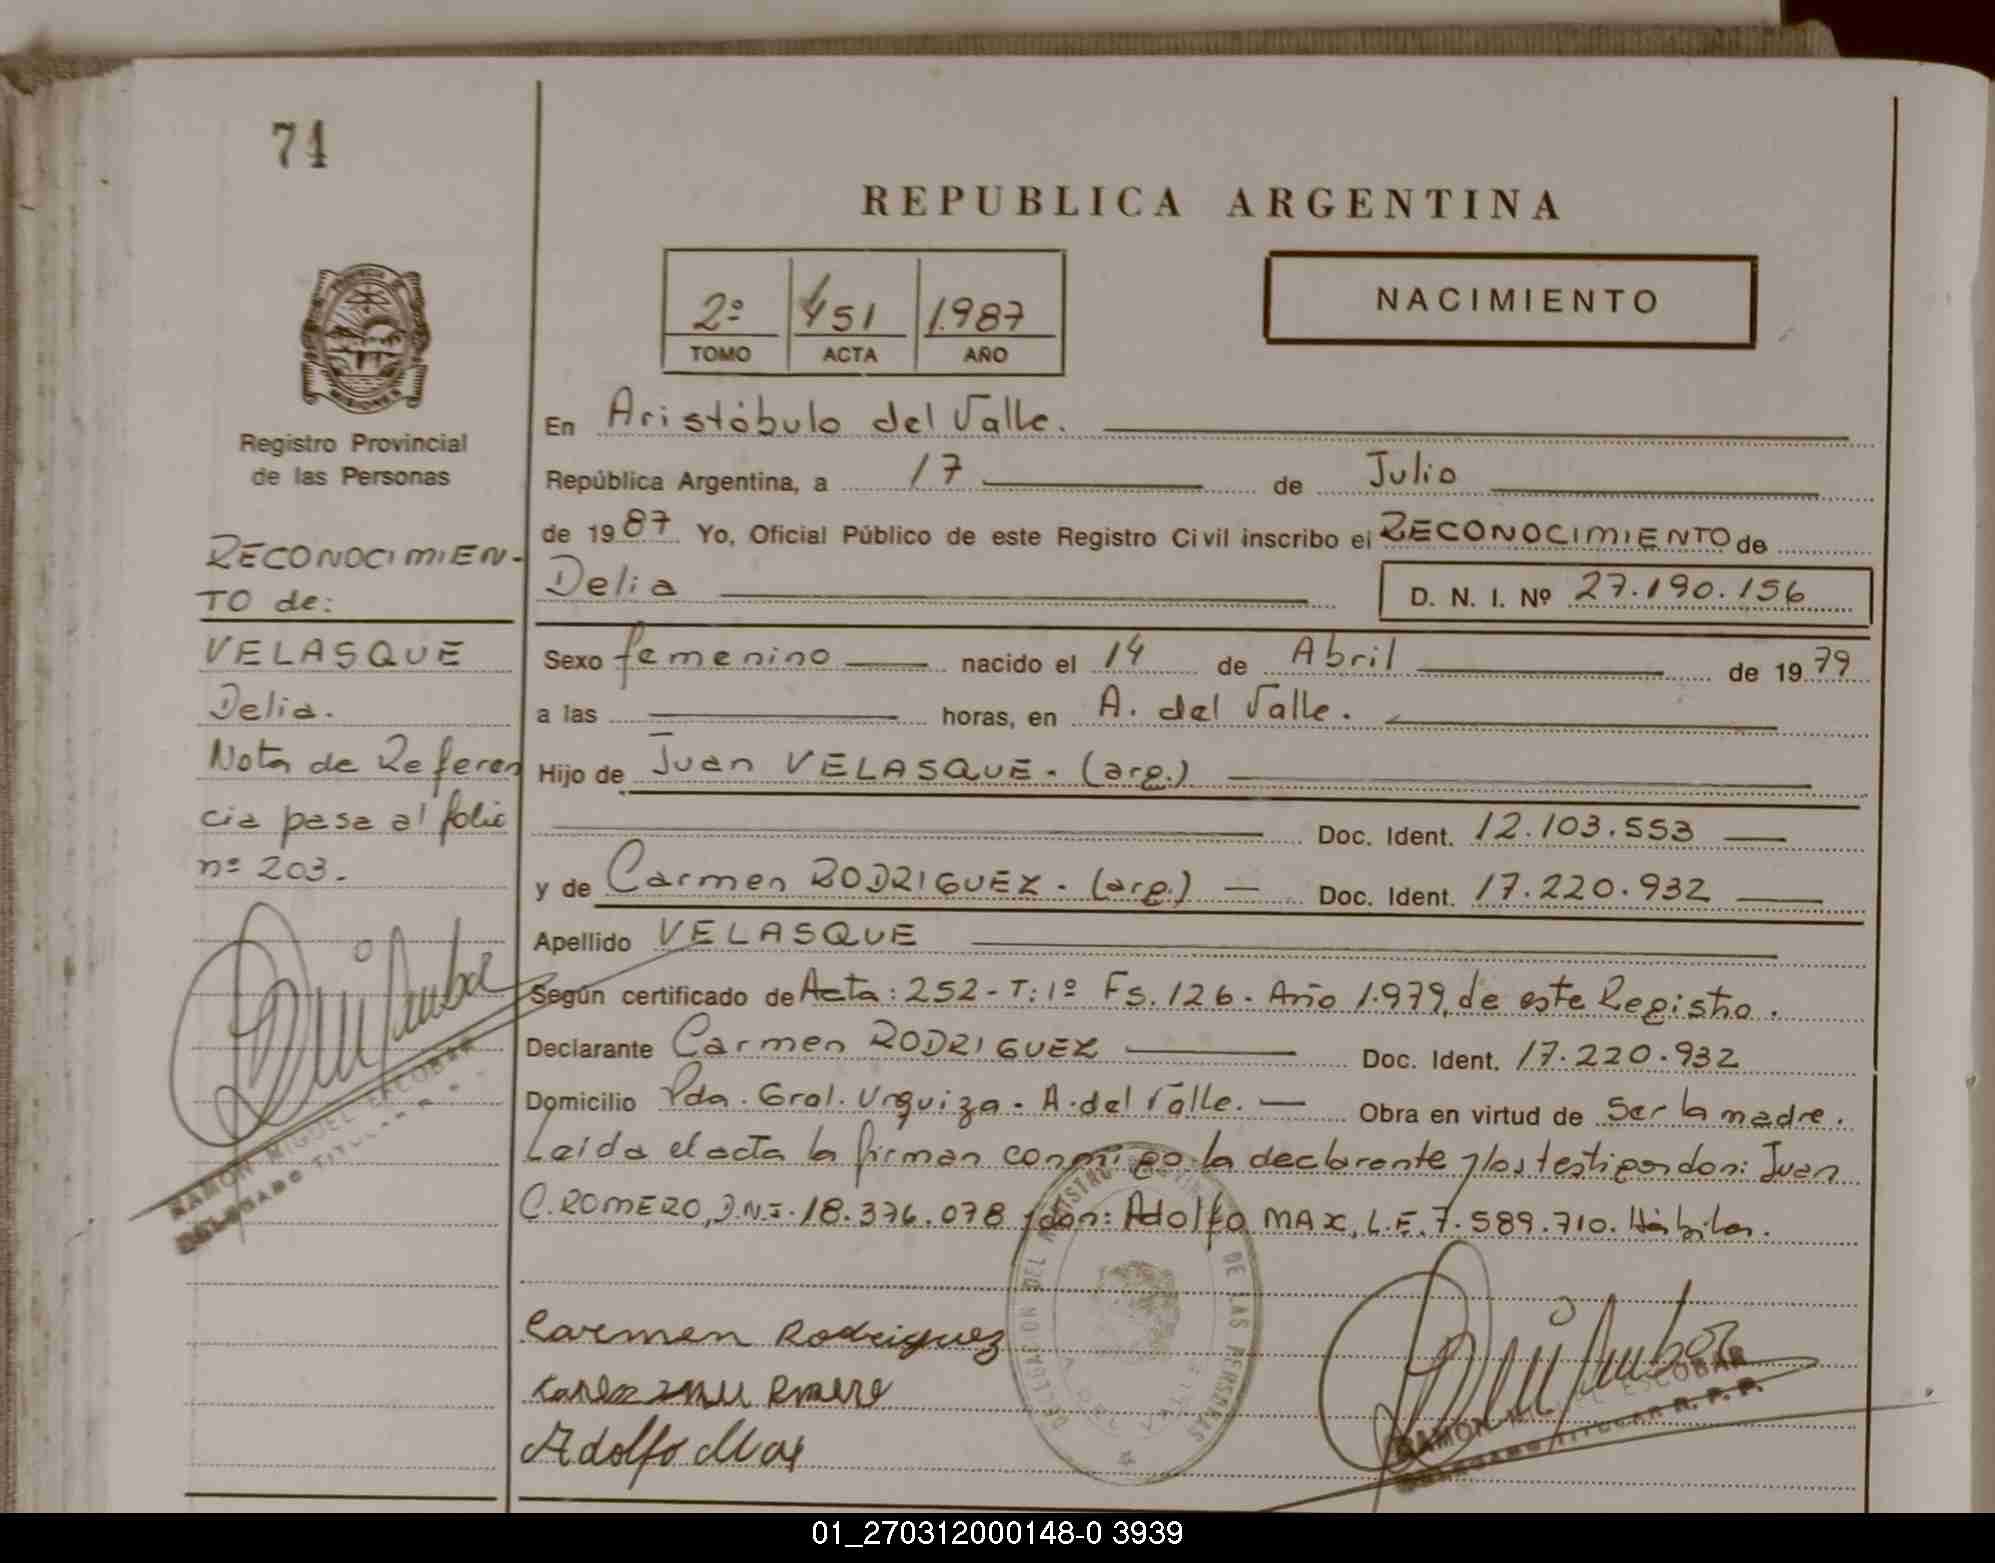 74
REPUBLICA ARGENTINA
2º 451 1.987
TOMO ACTA AÑO
NACIMIENTO
MISIONES
Registro Provincial
de las Personas
RECONOCIMIEN-
TO de:
VELASQUE
Delia.
Nota de Referen
cia pasa al folio
nº 203.
RAMON MIGUEL ESCOBAR
DELEGADO TITULAR
En Aristóbulo del Valle.
República Argentina, a 17 de Julio
de 1987 Yo, Oficial Público de este Registro Civil inscribo el RECONOCIMIENTO de
Delia D. N. I. Nº 27.190.156
Sexo femenino nacido el 14 de Abril de 1979
a las horas, en A. del Valle.
Hijo de Juan VELASQUE. (arg.)
Doc. Ident. 12.103.553
y de Carmen RODRIGUEZ. (arg.) Doc. Ident. 17.220.932
Apellido VELASQUE
Según certificado de Acta: 252 - T: 1º Fs. 126. Año 1.979, de este Registro.
Declarante Carmen RODRIGUEZ Doc. Ident. 17.220.932
Domicilio Pda. Gral. Urquiza. A. del Valle. Obra en virtud de Ser la madre.
Leída el acta la firman conmigo la declarante y los testigos don: Juan
C. ROMERO, D.N.I. 18.376.078 y don: Adolfo MAX, L.E. 7.589.710. Hábiles.
DELEGACION DEL REGISTRO PROVINCIAL DE LAS PERSONAS
Carmen Rodriguez
Romero
Adolfo Max
RAMON MIGUEL ESCOBAR
DELEGADO TITULAR R. P. P.
01_270312000148-0 3939